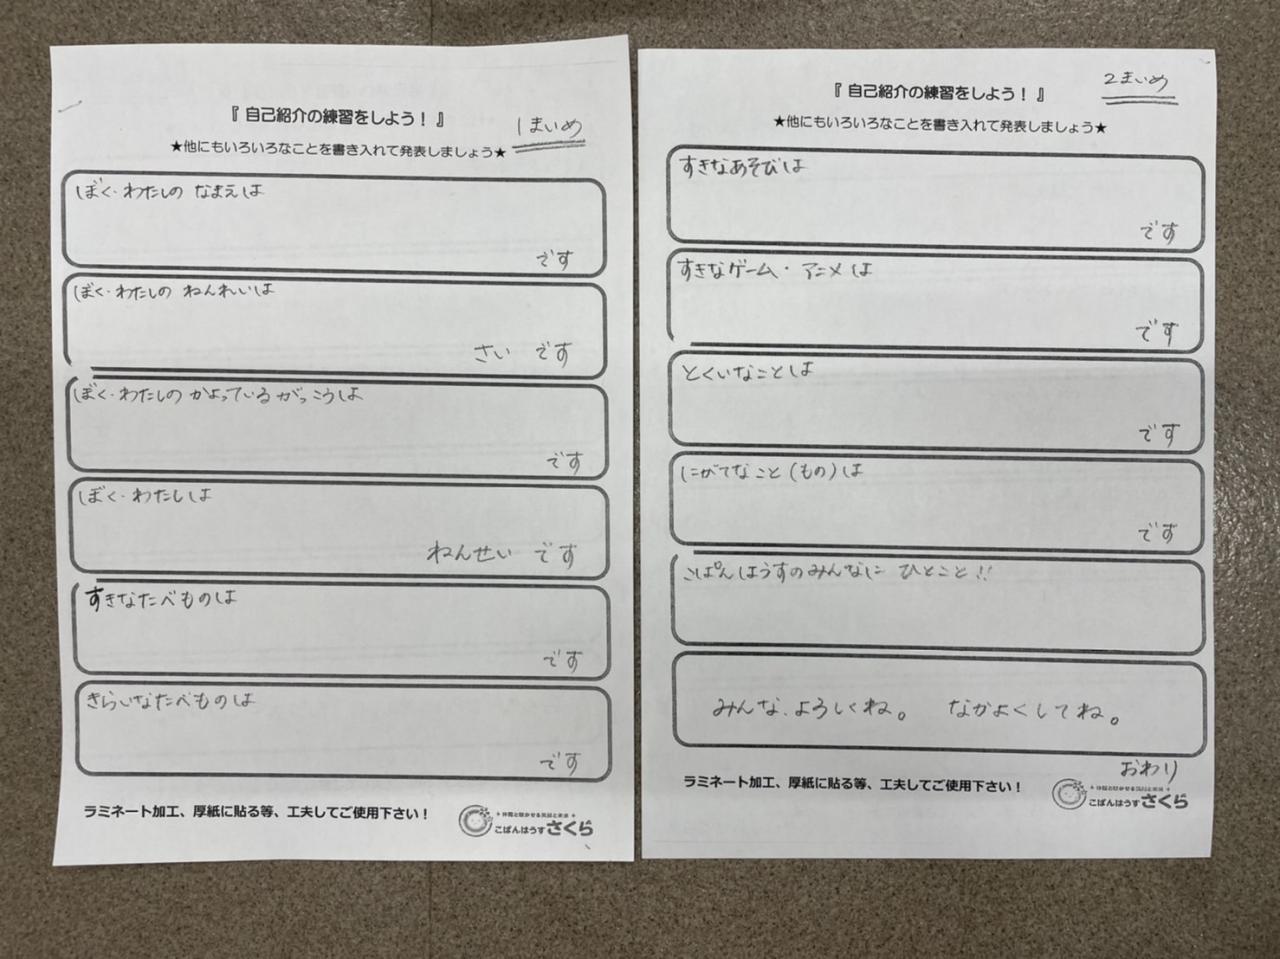 『 自己紹介の練習をしよう！ 』
1まいめ
★他にもいろいろなことを書き入れて発表しましょう★
ぼく・わたしの なまえは
です
ぼく・わたしの ねんれいは
さい です
ぼく・わたしの かよっている がっこうは
です
ぼく・わたしは
ねんせい です
すきなたべものは
です
きらいなたべものは
です
ラミネート加工、厚紙に貼る等、工夫してご使用下さい！
こぱんはうすさくら
2まいめ
『 自己紹介の練習をしよう！ 』
★他にもいろいろなことを書き入れて発表しましょう★
すきなあそびは
です
すきなゲーム・アニメは
です
とくいなことは
です
にがてなこと(もの)は
です
こぱんはうすのみんなに ひとこと!!
みんな、よろしくね。 なかよくしてね。
おわり
ラミネート加工、厚紙に貼る等、工夫してご使用下さい！
こぱんはうすさくら